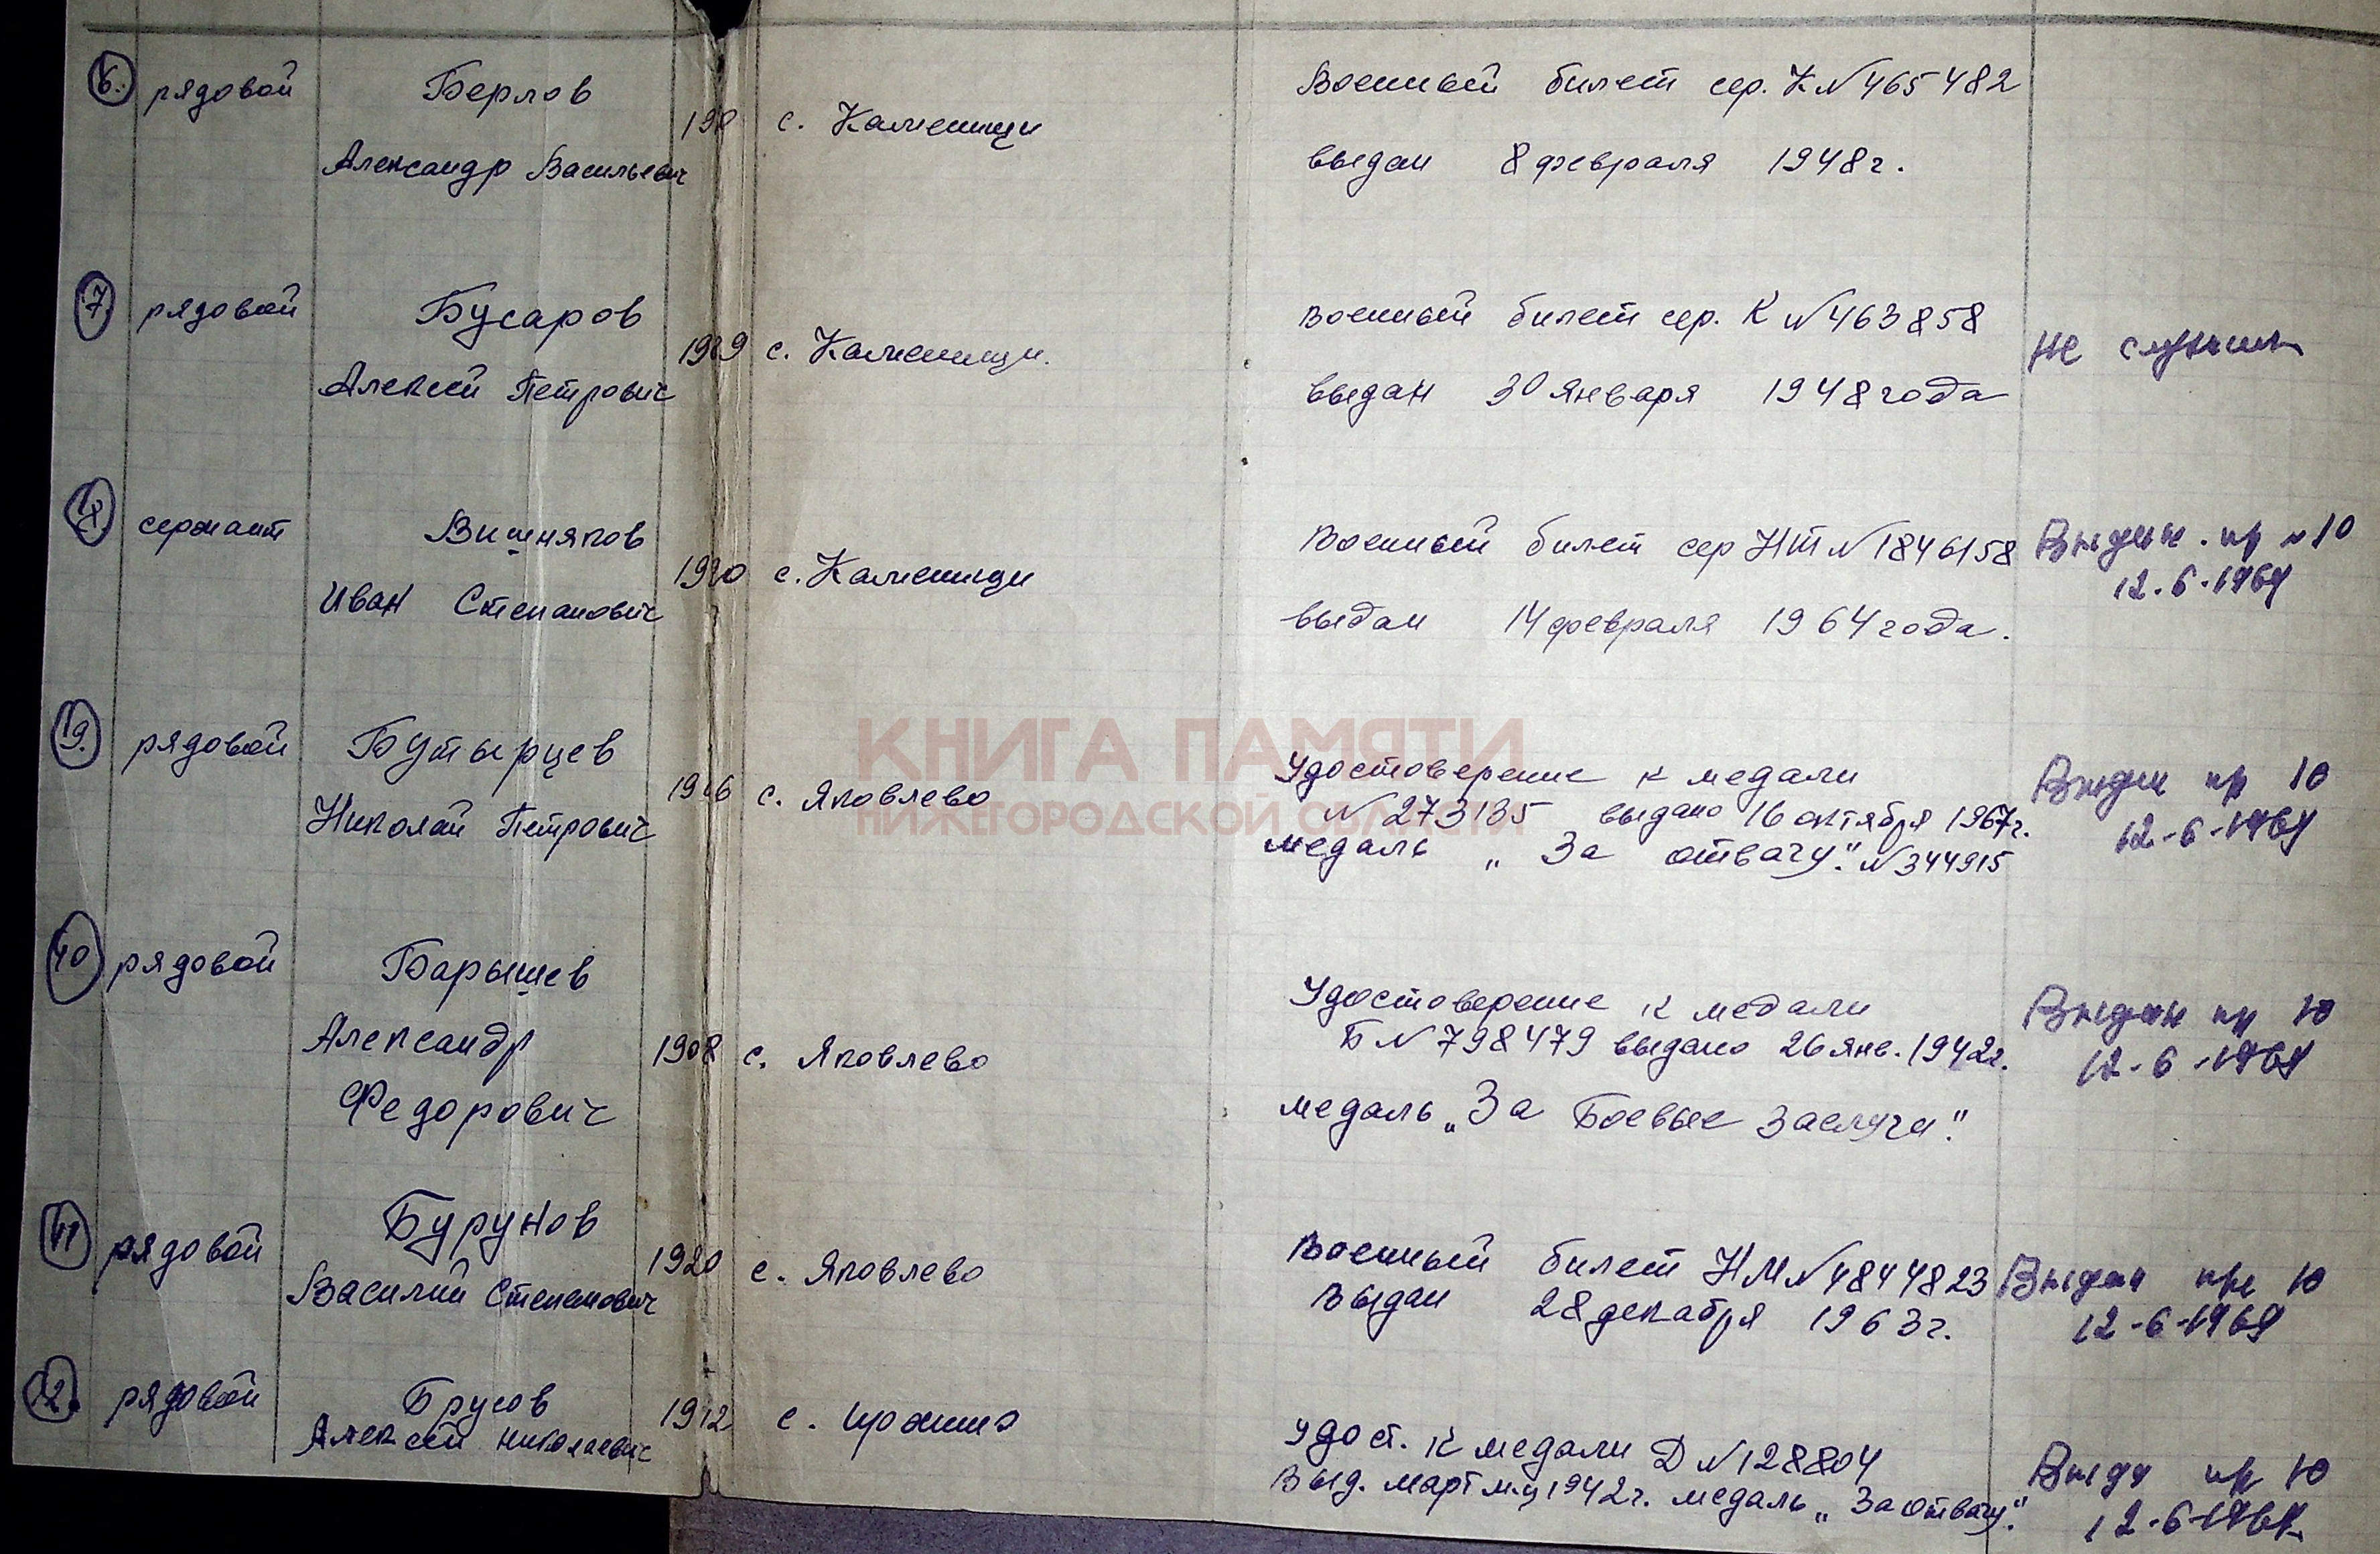 6. рядовой Берлов Военный билет сер. К №465482
с. Каменищи
Александр Васильевич выдан 8 февраля 1948г.
7. рядовой Бусаров Военный билет сер. К №463858
с. Каменищи. не служил
Алексей Петрович выдан 30 января 1948 года
сержант Вишняков Военный билет сер НТ №1846158 Выдан. пр №10
с. Каменищи 12.6.1969
Иван Степанович выдан 14 февраля 1964 года.
рядовой Бутырцев Удостоверение к медали Выдан пр 10
с. Яковлево № 273135 выдано 16 октября 1967г. 12-6-1969
Николай Петрович медаль „За отвагу". №344915
40 рядовой Барышев Удостоверение к медали Выдан пр 10
Александр 1908 с. Яковлево Б №798479 выдано 26 янв. 1942г. 12-6-1969
Федорович медаль „За Боевые Заслуги".
41 рядовой Бурунов Военный билет НМ №4844823 Выдан пр 10
1920 с. Яковлево
Василий Степанович Выдан 28 декабря 1963г. 12-6-1969
рядовой Брусов 1912 с. Удост. к медали Д №128804 Выдан пр 10
Алексей Николаевич Выд. март м-ц 1942г. медаль „За Отвагу". 12-6-1969
КНИГА ПАМЯТИ
НИЖЕГОРОДСКОЙ ОБЛАСТИ